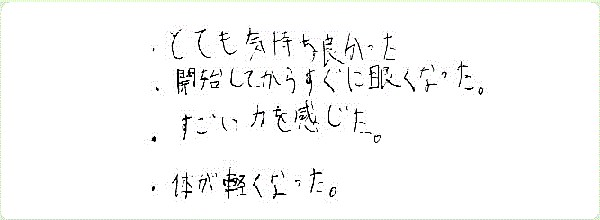 ・とても気持ち良かった
・開始してからすぐに眠くなった。
・すごい力を感じた。
・体が軽くなった。